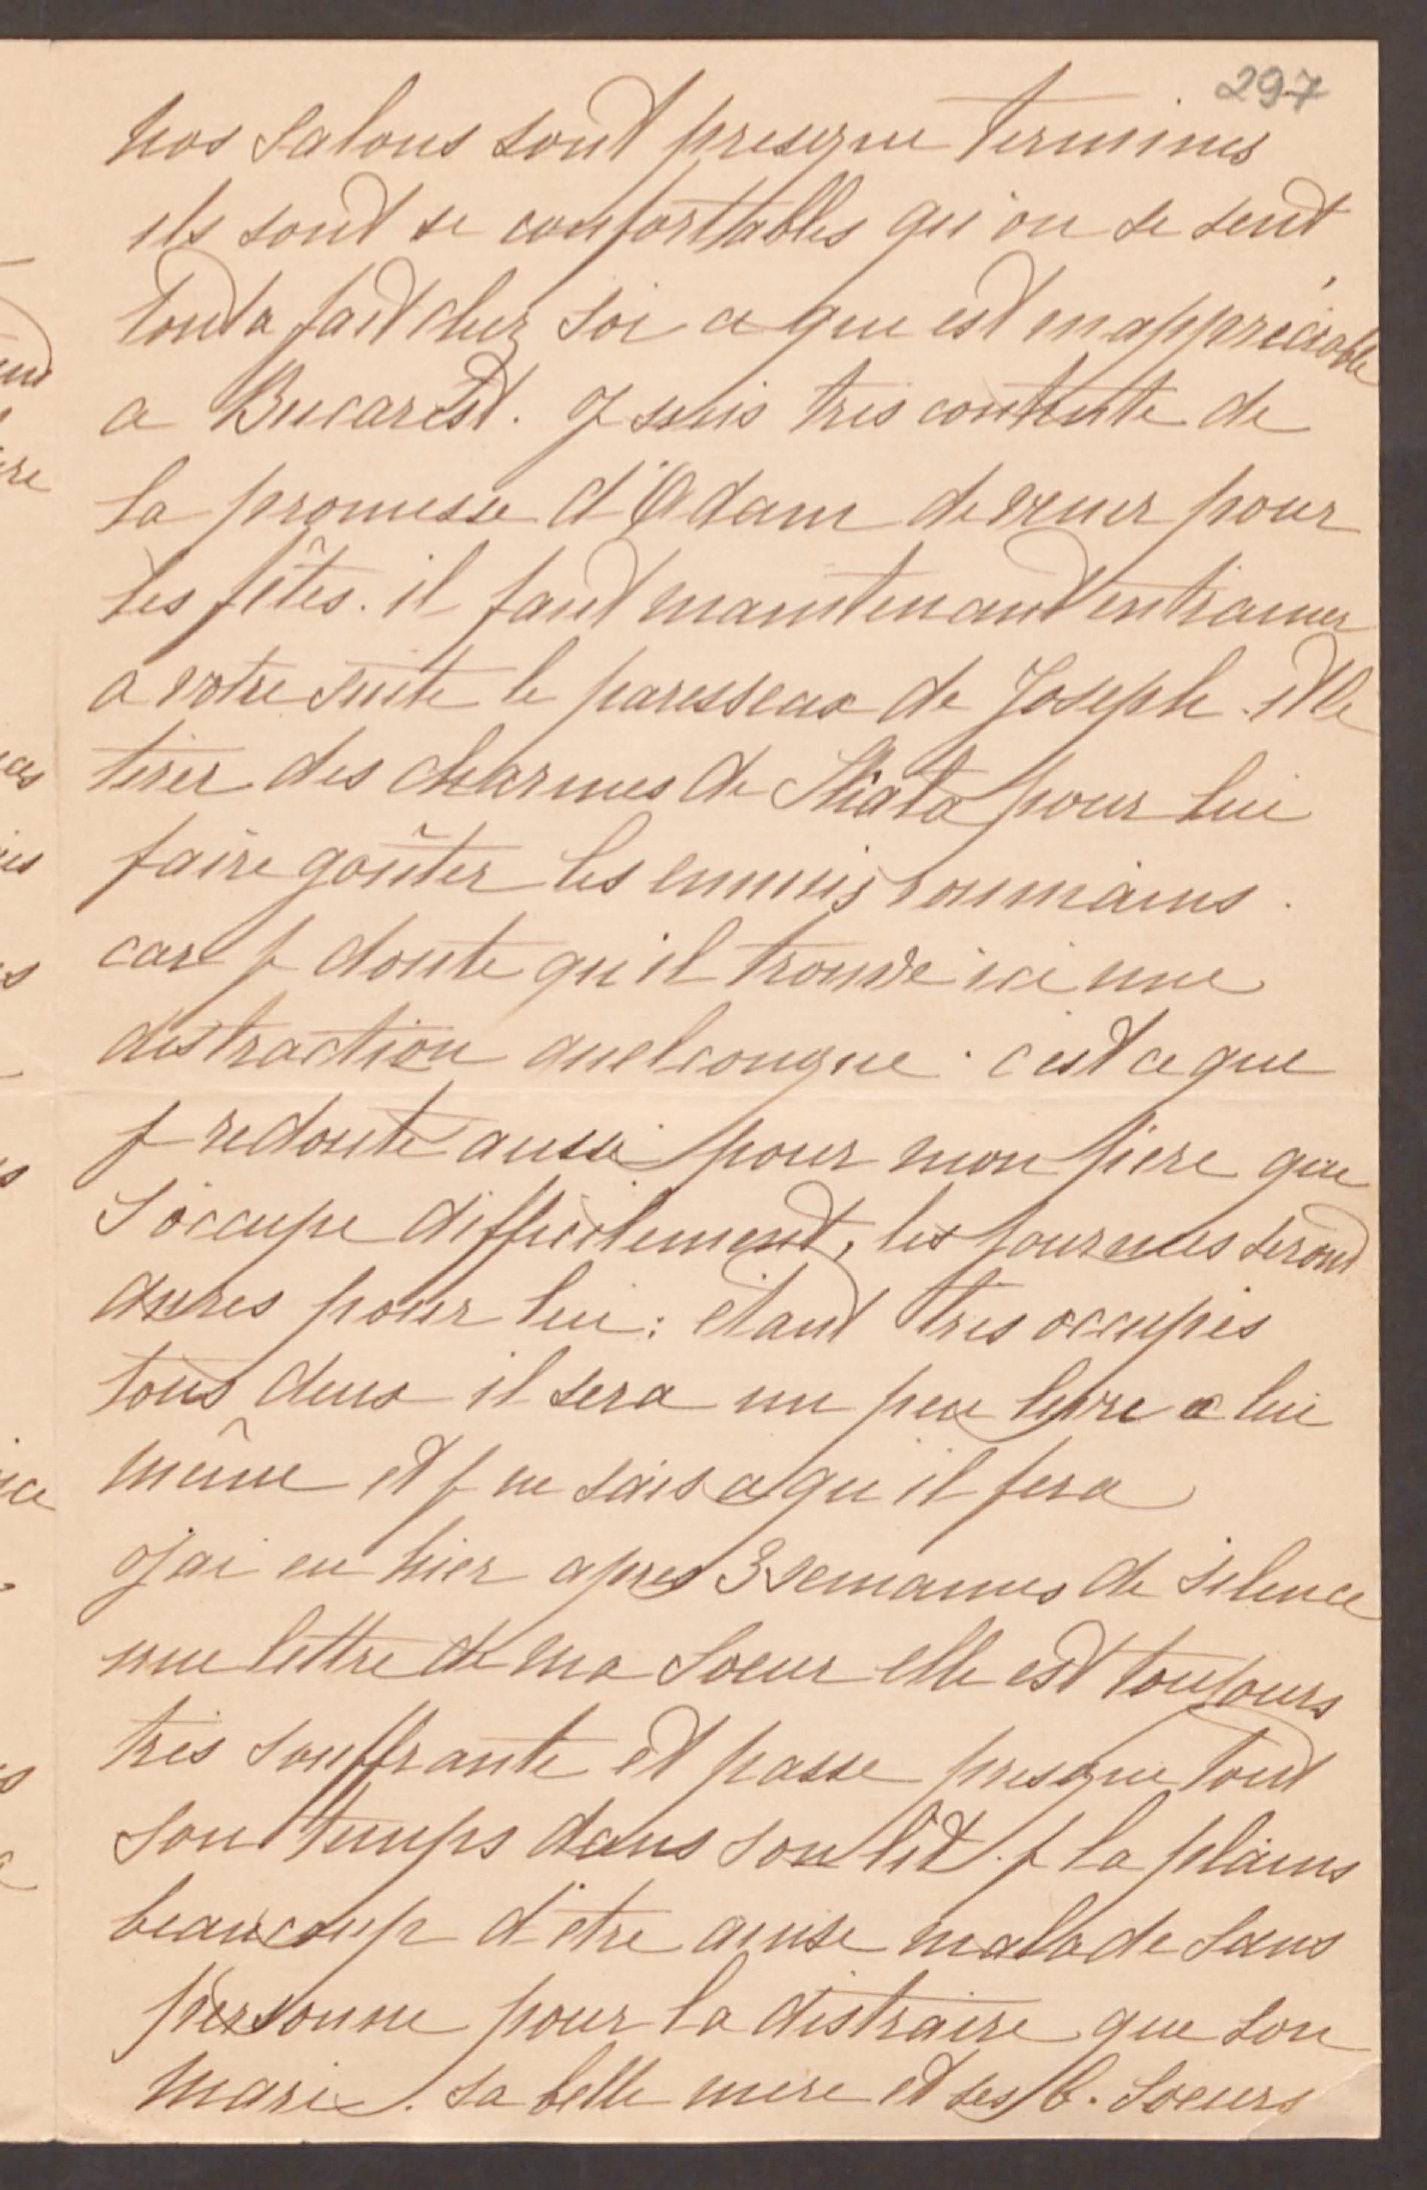 297
nos salons sont presque terminés
ils sont si confortables qu'on se sent
tout a fait chez soi ce qui est inappréciable
a Bucarest. Je suis très contente de
la promesse d'Adam de venir pour
les fêtes. il faut maintenant entrainer
a votre suite le paresseux de Joseph. et le
tirer des charmes de pour lui
faire goûter les ennuis roumains.
car je doute qu'il trouve ici une
distraction quelconque. c'est ce que
je redoute aussi pour mon père qui
s'occupe difficilement, les journées seront
dures pour lui: étant très occupés
tous deux il sera un peu livré a lui
même et je ne sais ce qu'il fera
J'ai eu hier apres 3 semaines de silence
une lettre de ma soeur elle est toujours
très souffrante et passe presque tout
son temps dans son lit. je la plains
beaucoup d'être ainsi malade sans
personne pour la distraire que son
mari. sa belle mere et ses b. soeurs